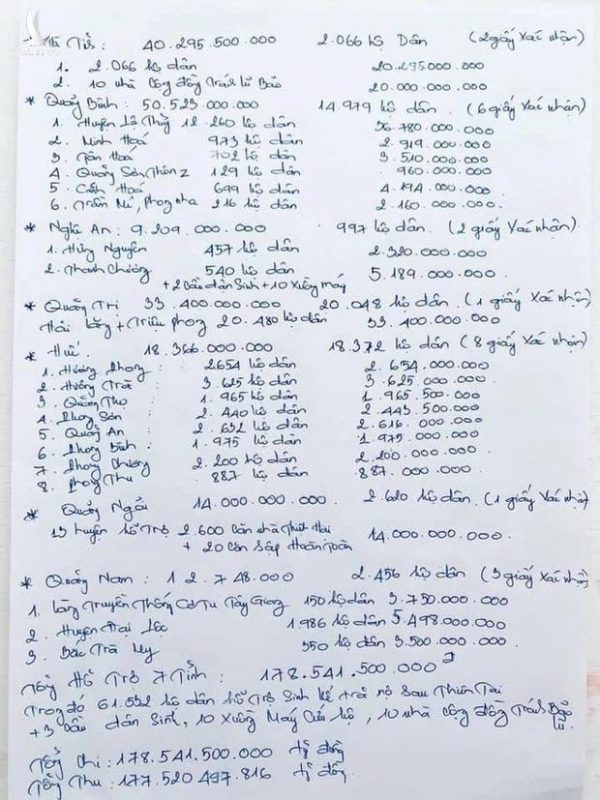 * Hà Tĩnh : 40.295.500.000 2.066 hộ Dân (2 giấy Xác nhận)
1. 2.066 hộ dân 20.295.000.000
2. 10 nhà Cộng đồng Tránh lũ Bảo 20.000.000.000
* Quảng Bình : 50.523.000.000 14.979 hộ dân . (6 giấy Xác nhận)
1. Huyện Lệ Thủy 12.260 hộ dân 36.780.000.000
2. Minh Hoá 973 hộ dân 2.919.000.000
3. Tân Hoá 702 hộ dân 3.510.000.000
4. Quảng Sơn, Thôn 2 129 hộ dân 960.000.000
5. Cảnh Hoá 699 hộ dân 4.194.000.000
6. Trằm Mé, Phong nha 216 hộ dân 2.160.000.000
* Nghệ An : 9.209.000.000 997 hộ dân . (2 giấy Xác nhận)
1. Hưng Nguyên 457 hộ dân 2.320.000.000
2. Thanh Chương 540 hộ dân 5.189.000.000
+ 2 Cầu dân Sinh + 10 Xuồng máy
* Quảng Trị 33.400.000.000 20.048 hộ dân . (1 giấy Xác nhận)
Hải Lăng + Triệu Phong 20.480 hộ dân 33.400.000.000
* Huế . 18.366.000.000 18.372 hộ dân (8 giấy Xác nhận)
1. Hương Phong : 2654 hộ dân 2.654.000.000
2. Hương Trà : 3.625 hộ dân 3.625.000.000
3. Quảng Thọ : 1.965 hộ dân 1.965.500.000
4. Phong Sơn : 2.440 hộ dân 2.443.500.000
5. Quảng An : 2.632 hộ dân 2.616.000.000
6. Phong Bình : 1.975 hộ dân 1.975.000.000
7. Phong Chương 2.200 hộ dân 2.200.000.000
8. Phong Thu : 887 hộ dân 887.000.000
* Quảng Ngãi 14.000.000.000 . 2.620 hộ dân . (1 giấy Xác nhận)
13 huyện hỗ Trợ 2.600 Căn nhà Thiệt Hại 14.000.000.000
+ 20 Căn Sập Hoàn Toàn
* Quảng Nam : 12.748.000 2.456 hộ dân (3 giấy Xác nhận)
1. Làng Truyền Thống Cơ Tu Tây Giang 150 hộ dân 3.750.000.000
2. Huyện Đại Lộc 1986 hộ dân 5.498.000.000
3. Bắc Trà My 350 hộ dân 3.500.000.000
Tổng Hỗ Trợ 7 Tỉnh : 178.541.500.000
Trong đó 61.532 hộ dân hỗ Trợ Sinh kế trả nợ Sau Thiên Tai
+ 3 Cầu dân Sinh, 10 Xuồng Máy Cứu hộ, 10 nhà Cộng đồng Tránh Bảo lũ.
Tổng Chi : 178.541.500.000 tỷ đồng
Tổng Thu : 177.520.497.816 tỷ đồng.